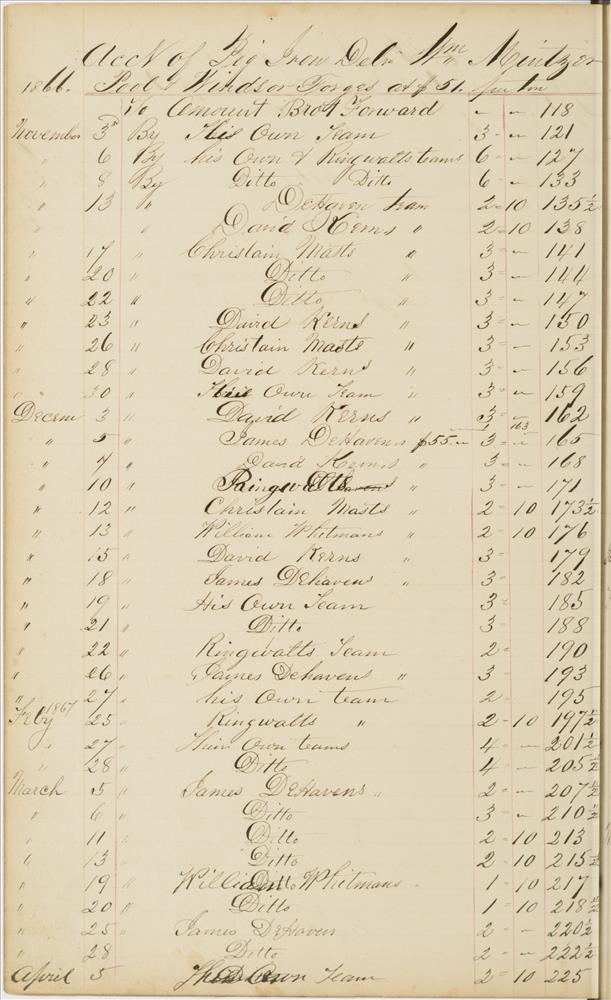 Acct of Pig Iron Delr Wm Mintzer
1866. Pool & Windsor Forges at $51. per ton
To Amount Brot Forward " - 118
November 3d By His Own Team 3 - - 121
" 6 By his Own & Ringwalts teams 6 - - 127
" 8 By Ditto Ditto 6 - - 133
" 13 " DeHaven team 2 - 10 135½
" " David Kerns " 2 - 10 138
" 17 " Christain Masts " 3 - - 141
" 20 " Ditto " 3 - - 144
" 22 " Ditto " 3 - - 147
" 23 " David Kerns " 3 - - 150
" 26 " Christain Masts " 3 - - 153
" 28 " David Kerns " 3 - - 156
" 30 " Own Team " 3 - - 159
Decem 3 " David Kerns " 3 - - 162
" 5 " James DeHavens $55. - 3 - - 163 165
" 7 " David Kerns " 3 - - 168
" 10 " Ringwalts " 3 - - 171
" 12 " Christain Masts " 2 - 10 173½
" 13 " William Whitmans " 2 - 10 176
" 15 " David Kerns " 3 - 179
" 18 " James Dehavens " 3 - 182
" 19 " His Own Team 3 - 185
" 21 " Ditto 3 - 188
" 22 " Ringwalts Team 2 - 190
" 26 " James Dehavens " 3 - 193
" 27 " his Own team 2 - 195
Feby 1867 25 " Ringwalts " 2 - 10 197½
" 27 " Their Own teams 4 - - 201½
" 28 " Ditto 4 - - 205½
March 5 " James DeHavens " 2 - - 207½
" 6 " Ditto 3 - - 210½
" 11 " Ditto 2 - 10 213
" 13 " Ditto 2 - 10 215½
" 19 " William Whitmans " 1 - 10 217
" 20 " Ditto 1 - 10 218½
" 25 " James DeHaven 2 - - 220½
" 28 Ditto 2 - - 222½
April 5 Own Team 2 - 10 225